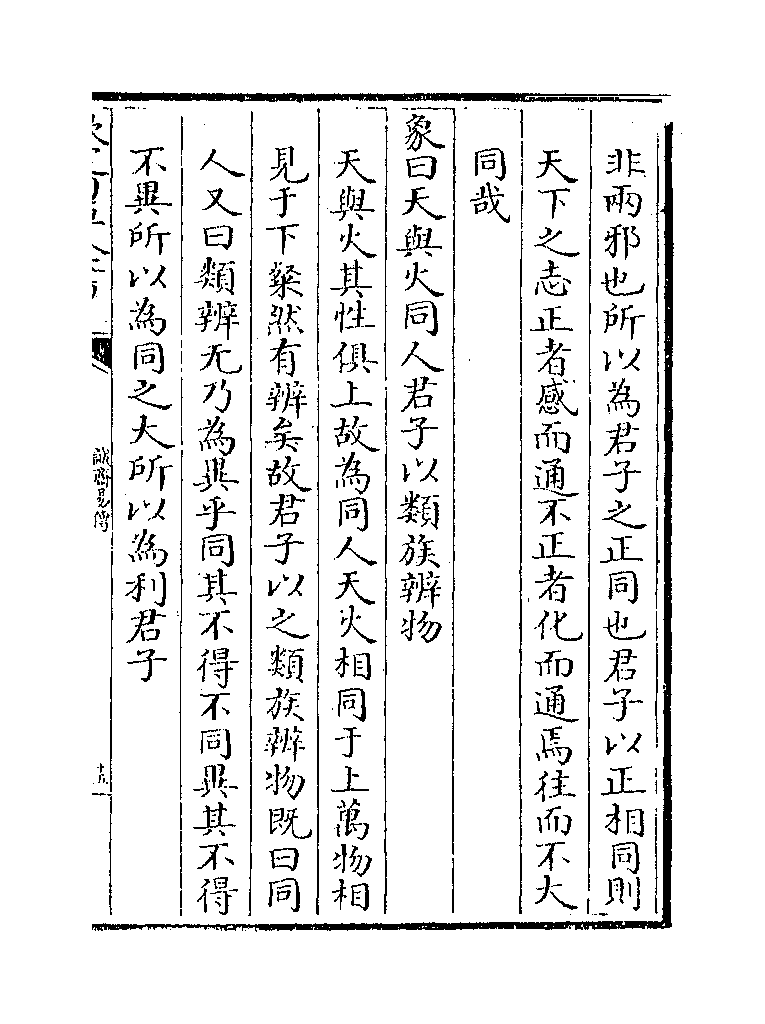 非兩邪也所以為君子之正同也君子以正相同則
天下之志正者感而通不正者化而通焉往而不大
同哉
象曰天與火同人君子以類族辨物
天與火其性俱上故為同人天火相同于上萬物相
見于下粲然有辨矣故君子以之類族辨物既曰同
人又曰類辨无乃為異乎同其不得不同異其不得
不異所以為同之大所以為利君子
誠齋易傳
十五